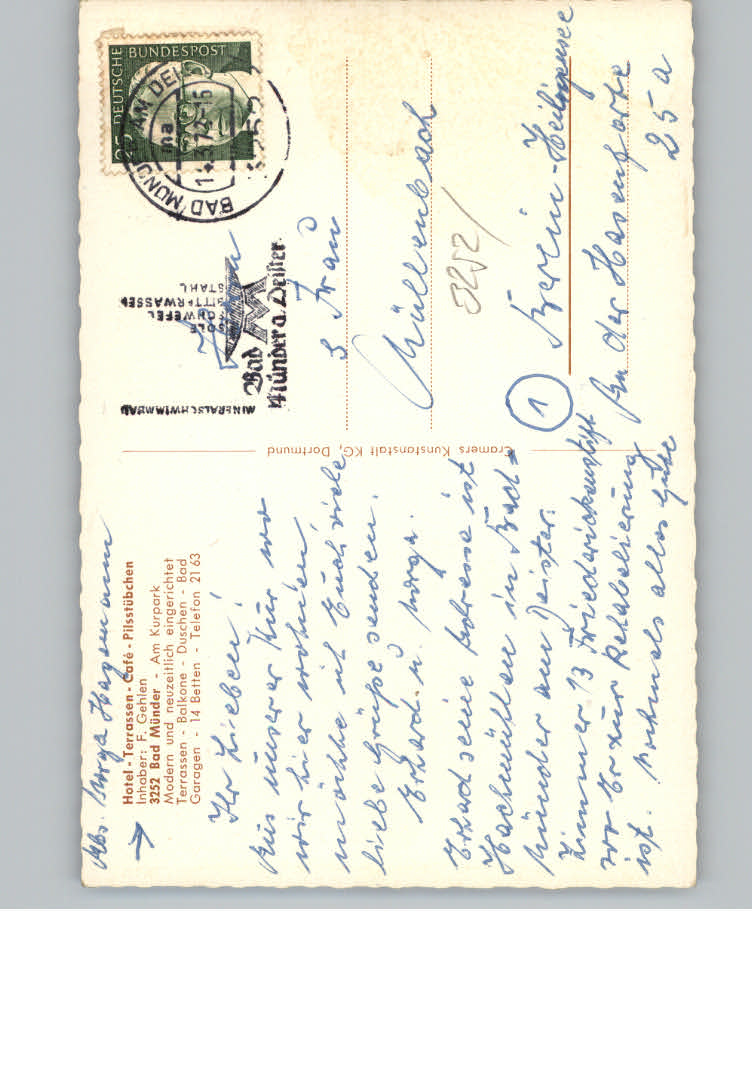 Abs. Norga Hagemann
Hotel - Terrassen - Café - Pilsstübchen
Inhaber: F. Gehlen
3252 Bad Münder - Am Kurpark
Modern und neuzeitlich eingerichtet
Terrassen - Balkone - Duschen - Bad
Garagen - 14 Betten - Telefon 21 63
Ihr Lieben!
Aus unserer Kur wo
wir hier wohnen
möchte ich Euch viele
liebe Grüße senden.
Erhard u. Norga.
Erhard seine Adresse ist
Hachmühlen in Bad-
Münder am Deister.
Zimmer 13 Friederickenstift
wo Er zur Rehabelierung
ist. nochmals alles Gute
Cramers Kunstanstalt KG, Dortmund
DEUTSCHE BUNDESPOST
25
BAD MÜNDER AM DEI
ma
-15
MINERALSCHWIMMBAD
SOLE
SCHWEFEL
BITTERWASSER
STAHL
Bad
Münder a. Deister
Frau
Müllenbach
3252
1
Berlin-Heiligensee
An der Hasenforte
25 a